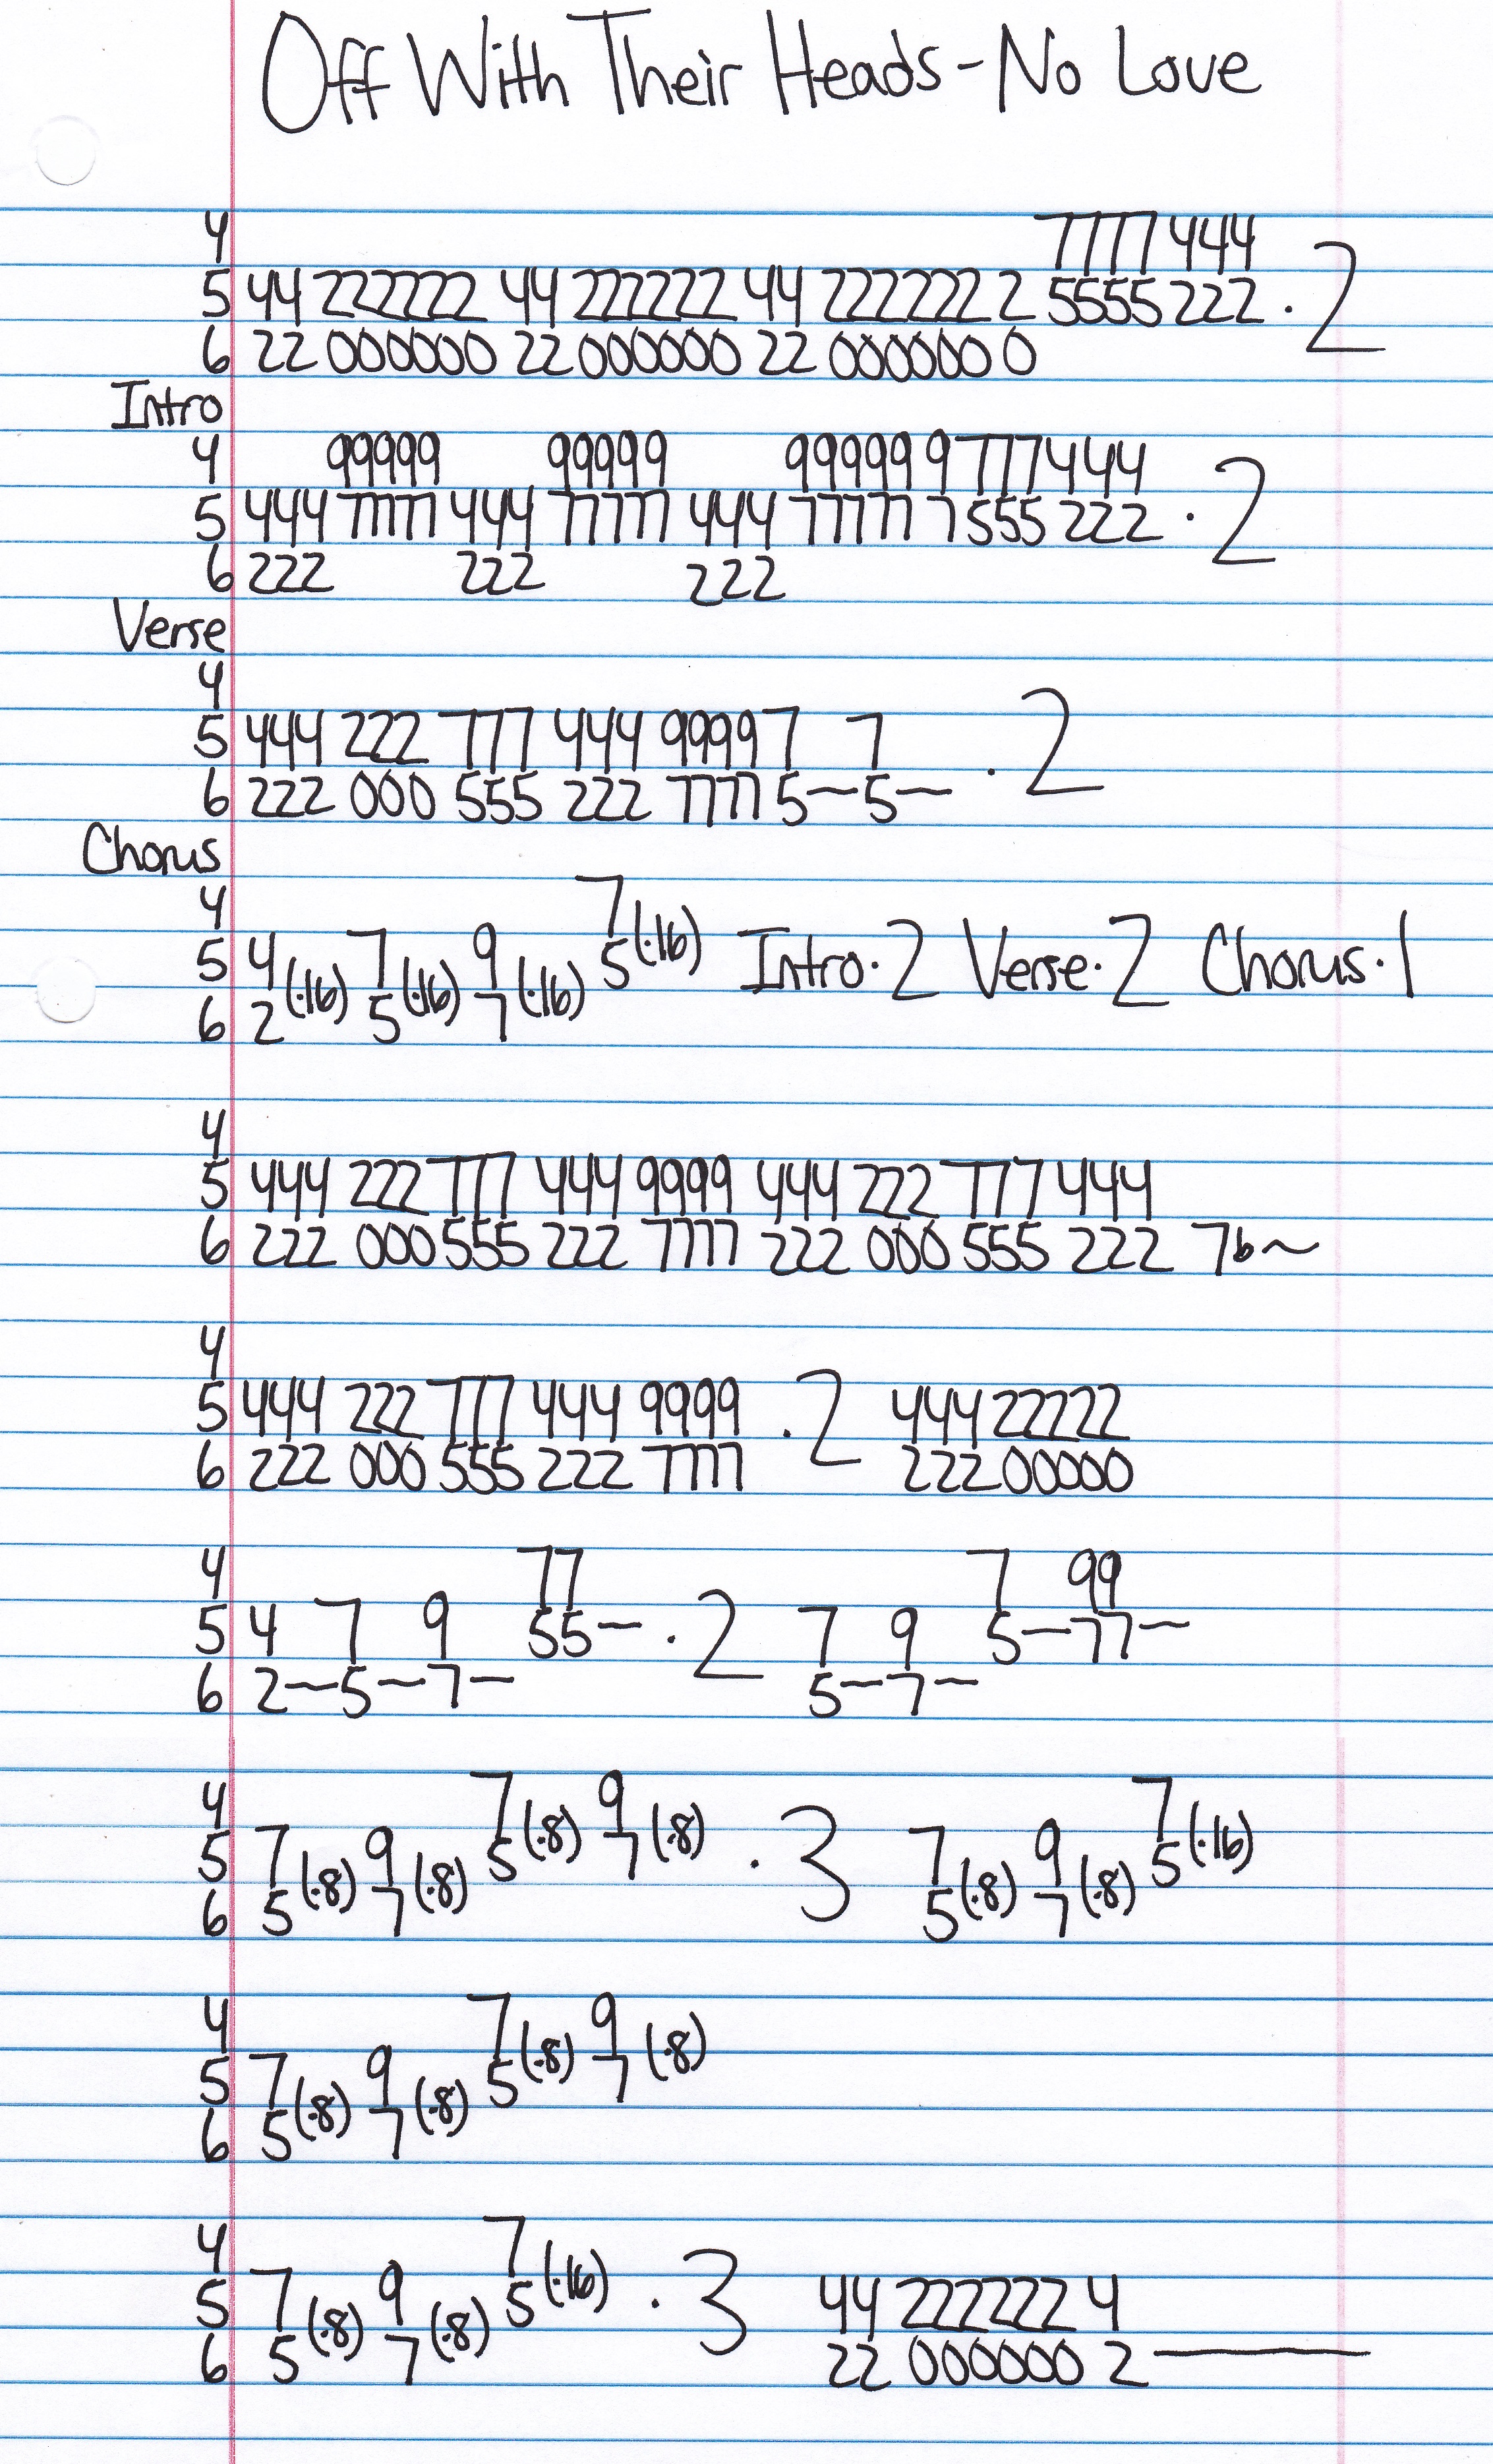 Off With Their Heads - No Love
4 7777 444
5 44 222222 44 222222 44 222222 2 5555 222 · 2
6 22 000000 22 000000 22 000000 0
Intro
4 99999 99999 99999 9 777 444
5 444 77777 444 77777 444 77777 7 555 222 · 2
6 222 222 222
Verse
4
5 444 222 777 444 9999 7 7 · 2
6 222 000 555 222 7777 5~5~
Chorus
4 7
5 4 7 9 5(·16) Intro·2 Verse·2 Chorus·1
6 2(·16) 5(·16) 7(·16)
4
5 444 222 777 444 9999 444 222 777 444
6 222 000 555 222 7777 222 000 555 222 7b~
4
5 444 222 777 444 9999 · 2 444 22222
6 222 000 555 222 7777 222 00000
4 77 7 99
5 4 7 9 55~ · 2 7 9 5~77~
6 2~5~7~ 5~7~
4 7 9 7
5 7 9 5(·8) 7(·8) · 3 7 9 5(·16)
6 5(·8) 7(·8) 5(·8) 7(·8)
4 7 9
5 7 9 5(·8) 7(·8)
6 5(·8) 7(·8)
4 7
5 7 9 5(·16) · 3 44 222222 4
6 5(·8) 7(·8) 22 000000 2———